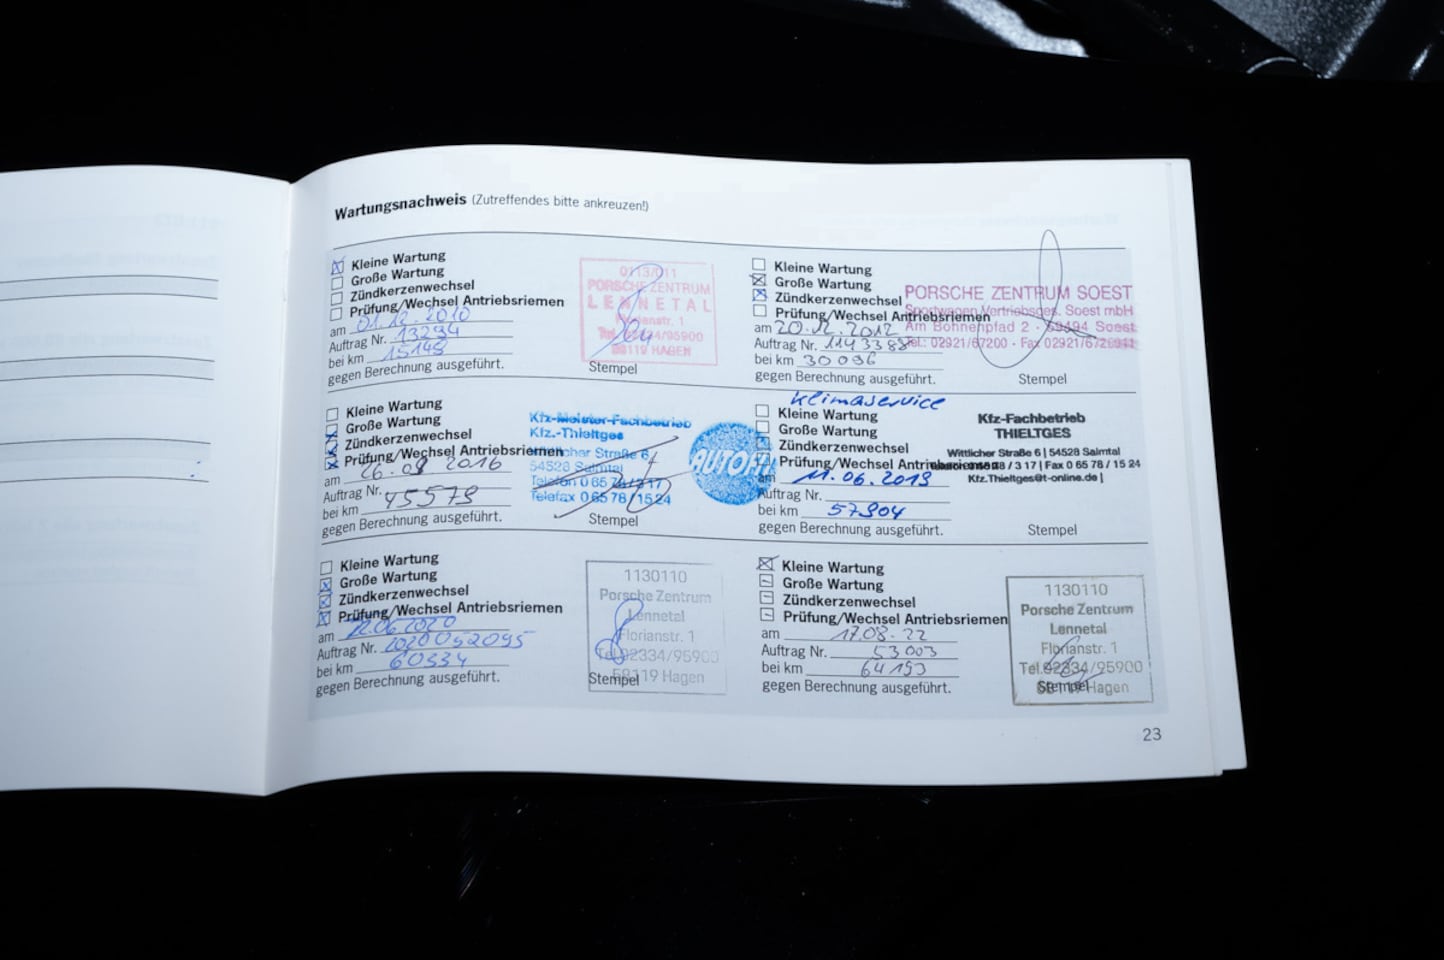 Wartungsnachweis (Zutreffendes bitte ankreuzen!)
Kleine Wartung
Große Wartung
Zündkerzenwechsel
Prüfung/Wechsel Antriebsriemen
am 01.12.2010
Auftrag Nr. 13294
bei km 15145
gegen Berechnung ausgeführt.
0113/011
PORSCHE ZENTRUM
LENNETAL
Florianstr. 1
Tel. 02334/95900
58119 HAGEN
Stempel
Kleine Wartung
Große Wartung
Zündkerzenwechsel
Prüfung/Wechsel Antriebsriemen
am 20.12.2012
Auftrag Nr. 1143388
bei km 30096
gegen Berechnung ausgeführt.
PORSCHE ZENTRUM SOEST
Sportwagen Vertriebsges. Soest mbH
Am Bohnenpfad 2 · 59494 Soest
Tel.: 02921/67200 · Fax 02921/6726941
Stempel
Kleine Wartung
Große Wartung
Zündkerzenwechsel
Prüfung/Wechsel Antriebsriemen
am 2016
Auftrag Nr.
bei km 45579
gegen Berechnung ausgeführt.
Kfz-Meister-Fachbetrieb
Kfz.-Thieltges
Wittlicher Straße 6
54528 Salmtal
Telefon 0 65 78 / 3 17
Telefax 0 65 78 / 15 24
AUTOFIT
Stempel
Klimaservice
Kleine Wartung
Große Wartung
Zündkerzenwechsel
Prüfung/Wechsel Antriebsriemen
am 11.06.2019
Auftrag Nr.
bei km 57904
gegen Berechnung ausgeführt.
Kfz-Fachbetrieb
THIELTGES
Wittlicher Straße 6 | 54528 Salmtal
/ 3 17 | Fax 0 65 78 / 15 24
Kfz.Thieltges@t-online.de |
Stempel
Kleine Wartung
Große Wartung
Zündkerzenwechsel
Prüfung/Wechsel Antriebsriemen
am 22.06.2020
Auftrag Nr. 2020052095
bei km 60334
gegen Berechnung ausgeführt.
1130110
Porsche Zentrum
Lennetal
Florianstr. 1
Tel.02334/95900
58119 Hagen
Stempel
Kleine Wartung
Große Wartung
Zündkerzenwechsel
Prüfung/Wechsel Antriebsriemen
am 17.08.22
Auftrag Nr. 53003
bei km 64193
gegen Berechnung ausgeführt.
1130110
Porsche Zentrum
Lennetal
Florianstr. 1
Tel.02334/95900
58119 Hagen
Stempel
23